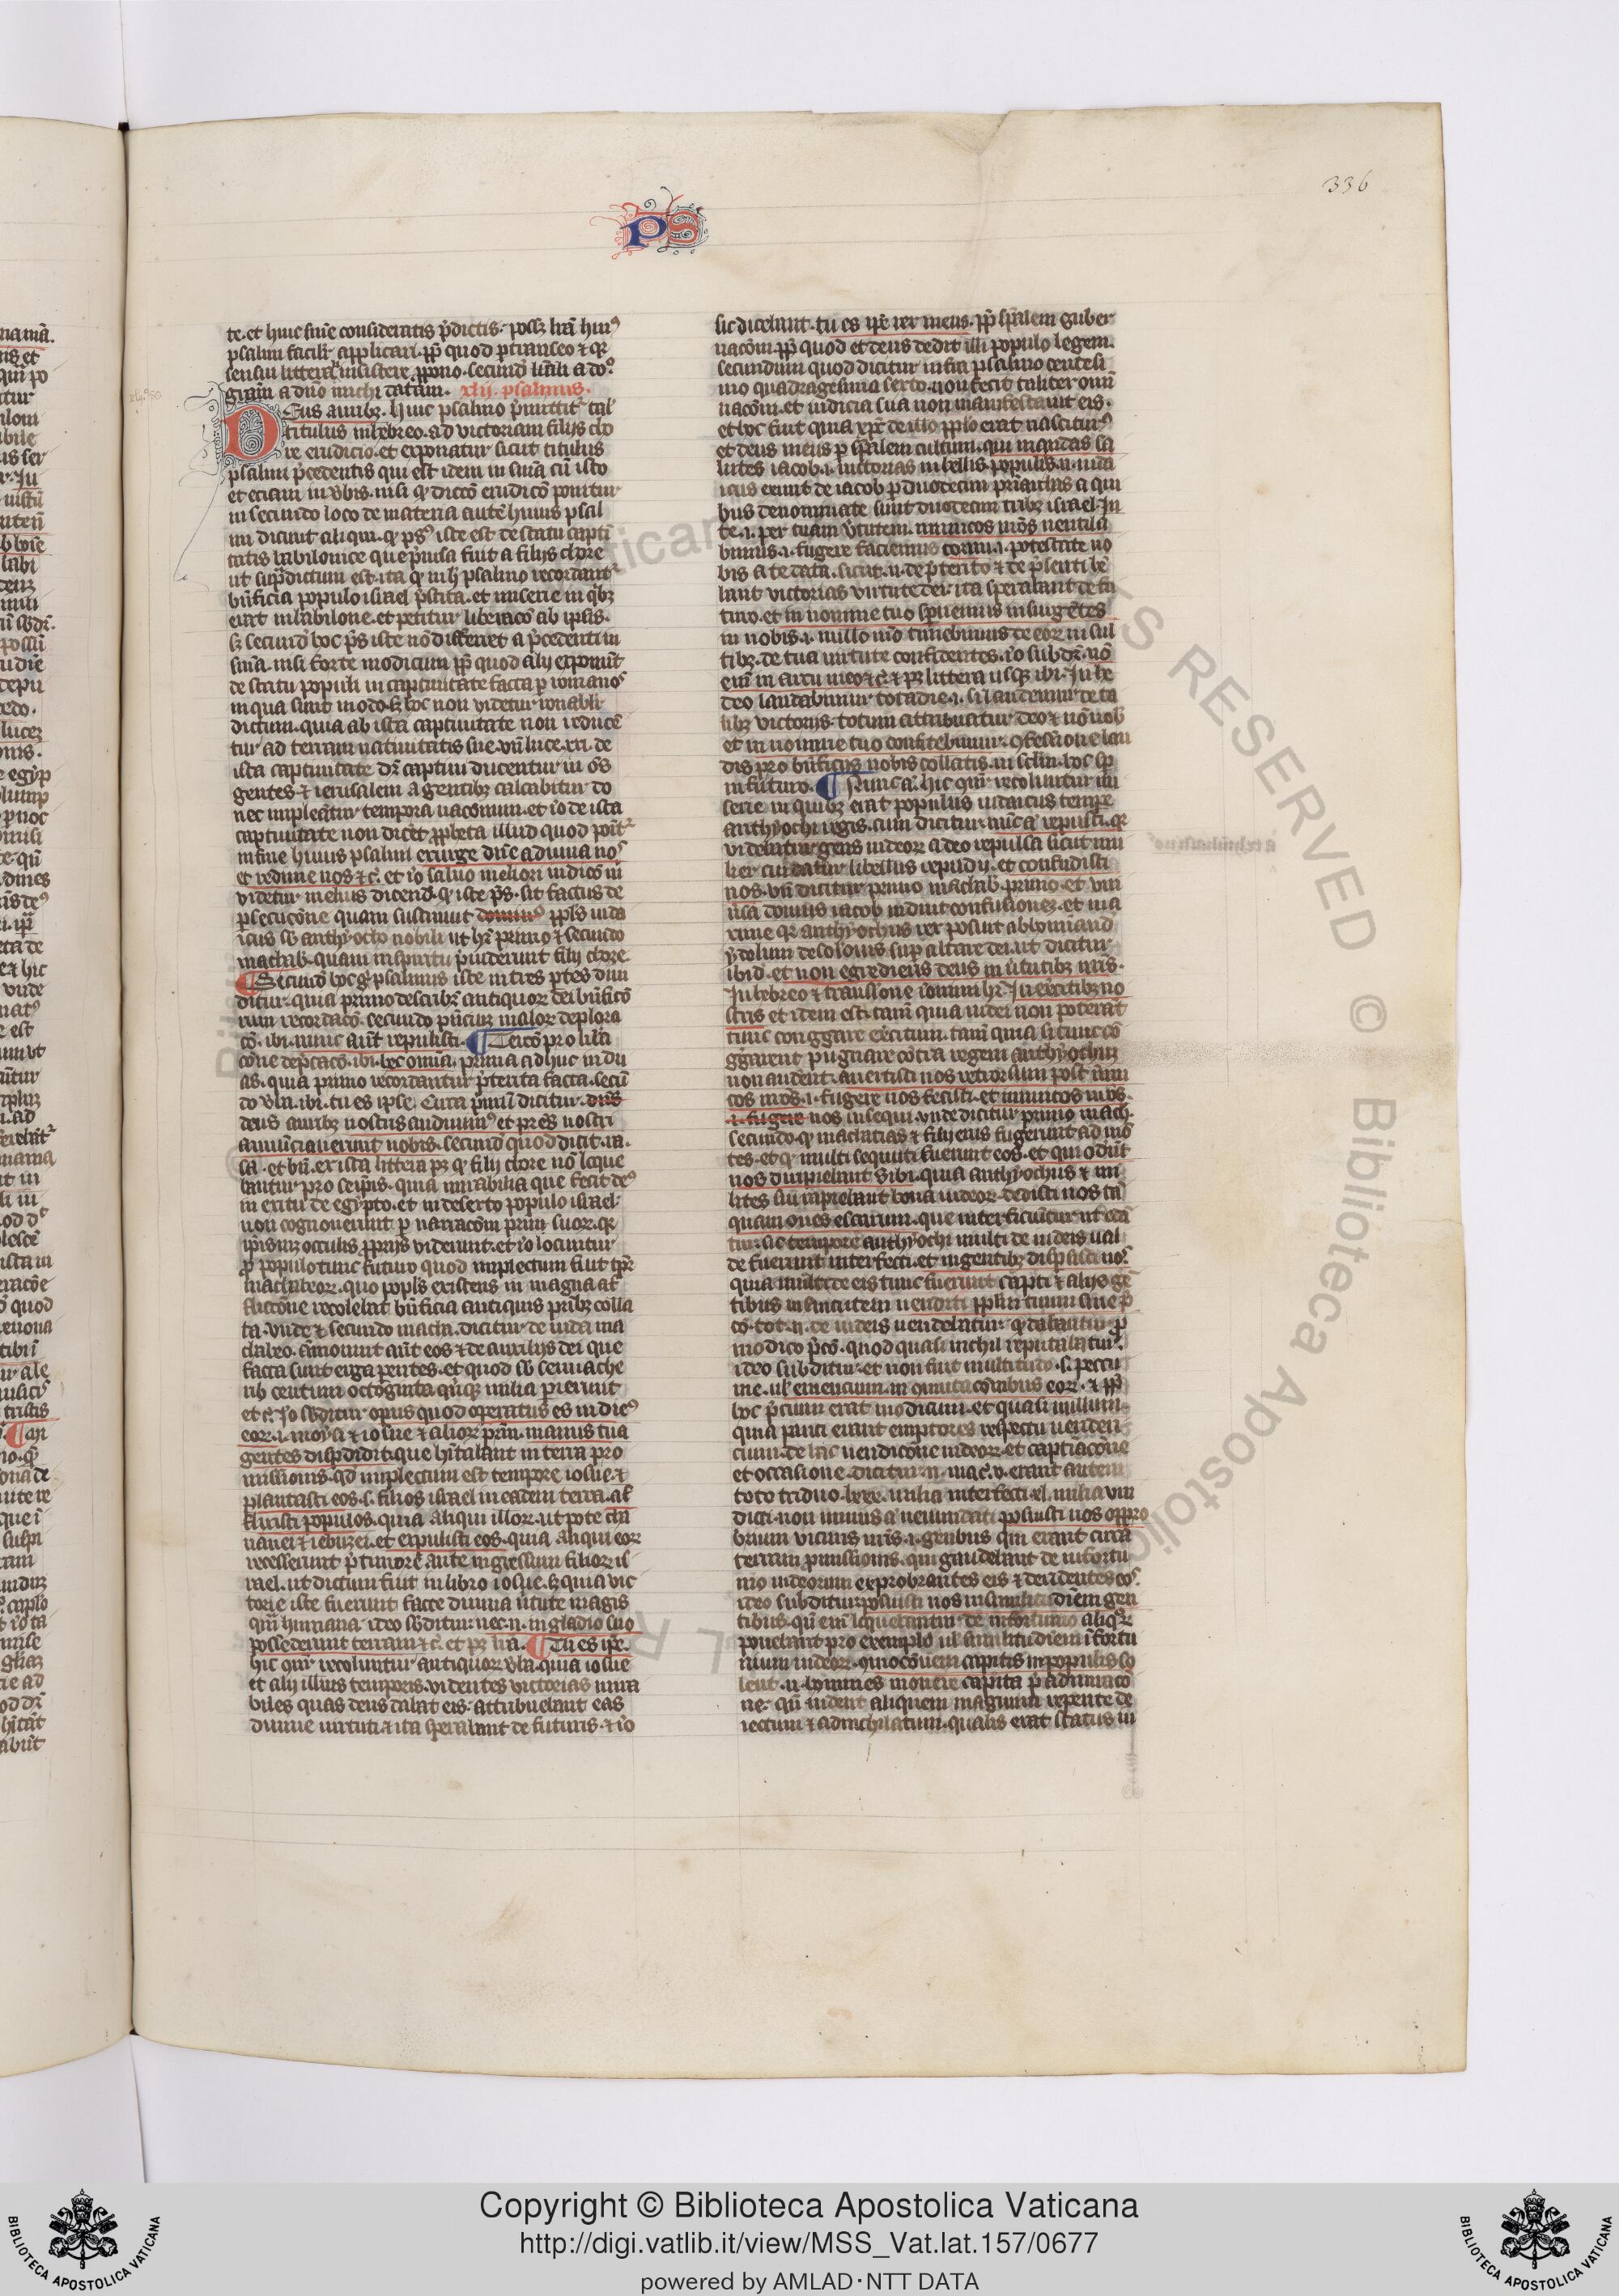 336
PS
te. et huic sūie consideratis p̄dictis. possz lr̄a hui⁹
psalmi facilr̄ applicari. ꝓp̄ quod ꝑtranseo & qr
sensui litterali insistere ꝓpono. secund̄ lr̄ali a do⁹
grām a dn̄o michi datam. xliii. psalmus.
Deus auribz. huic psalmo p̄mittit᷑ tal᷑
titulus in hebreo. ad victoriam filijs cho
re erudicio. et exponatur sicut titulus
psalmi p̄cedentis qui est idem in sn̄ia cū isto
et eciam in v̄bis. nisi qꝫ dicc̄o erudicō ponitur
in secundo loco de materia autē huius psal
mi dicunt aliqui. qꝫ ps⁹ iste est de statu capti
tatis babilonice que p̄uisa fuit a filijs chore
ut sup̄dictum est. ita qꝫ in hͦ psalmo recordant᷑
bn̄ficia populo israel p̄stita. et miserie in qͥbz
erat in babilone. et petitur liberacō ab ipsis.
sꝫ secund̄ hoc ps̄ iste nō differret a p̄cedenti in
sn̄ia. nisi forte modicum ꝓp̄ quod alij exponūt
de statu populi in captiuitate facta ꝑ romanos
in qua sunt modo. sꝫ hoc non videtur rōnabilr̄
dictum. quia ab ista captiuitate non reducē
tur ad terram natiuitatis sue. vn̄ luce. xxi. de
ista captiuitate dr̄ captiui ducentur in om̄s
gentes. & ierusalem a gentibz calcabitur do
nec impleātur tempora nacōnum. et iͦo de ista
captiuitate non dicēt ꝓpheta illud quod ponit᷑
in fine huius psalmi exurge dn̄e adiuua nos
et redime nos &c̄. et iͦo saluo meliori iudicō mͥ
videtur melius dicend̄. qꝫ iste ps̄. sit factus de
ꝑsecucōne quam sustinuit domin⁹ ppl̄s iuda
icus sb̄ anthyocho nobili ut hr̄ primo & secundo
machab. quam in spiritu p̄uiderunt filij chore.
¶ Secund̄ hoc gͦ psalmus iste in tres ptes diui
ditur. quia primo describr̄ antiquorꝫ dei bn̄ficō
rum recordacō. secundo p̄ncium malorꝫ deplora
cō. ibi. nunc aūt repulisti. ¶ Tercō pro libera
cōne dep̄cacō. ibi. hec omīa. prima adhuc in du
as. quia primo recordantur p̄terita facta. secū
do v̄ba. ibi. tu es ipse. Circa primū dicitur. dn̄s
deus auribz nostris audiuim⁹ et pr̄es nostri
annūciauerunt nobis. secund̄ quod dicit ra.
sa. et bn̄. ex ista littera pꝫ qꝫ filij chore nō loque
bantur pro seip̄is. quia mirabilia que fecit de⁹
in exitu de egypto. et in deserto populo israel
non cognouerunt ꝑ narracōm prim̄ suorꝫ. qr
ip̄imꝫ occulis ꝓprijs viderunt. et iͦo locuntur
ꝓ populo tunc futuro quod impletum fuit tp̄r
machabeorꝫ. quo ppl̄s existens in magna af
flictōne recolebat bn̄ficia antiquis pribz colla
ta. vnde & secundo macha. dicitur de iuda ma
chabeo. āmonuit aūt eos & de auxilijs dei que
facta sunt erga parentes. et quod sb̄ sennache
rib centum octoginta qͥnqꝫ milia perierunt
et c̄. iͦo sb̄ditur opus quod operatus es in dieb⁹
eorꝫ. i. moysi & iosue & aliorꝫ pr̄m. manus tua
gentes disꝑdidit. que hīt̄abant in terra pro
missionis. qd̄ impletum est tempore iosue. &
plantasti eos. s. filios israel in eadem terra. af
flixisti populos. quia aliqui illorꝫ. ut pote cha
nanei & iebuzei. et expulisti eos. quia aliqui eorꝫ
recesserunt p̄ timore ante ingressum filiorꝫ is
rael. ut dictum fuit in libro iosue. sꝫ quia vic
torie iste fuerunt facte diuina v̄tute magis
qm̄ humana. ideo sb̄ditur. nec. n. in gladio suo
possederunt terram &c̄. et pꝫ lr̄a. ¶ Tu es ip̄e.
hic q̄nr̄ recoluntur antiquorꝫ v̄ba. quia iosue
et alij illius temporis. videntes victorias mira
biles quas deus dabat eis. attribuebant eas
diuine virtuti. & ita sperabant de futuris. & iͦo
sic dicebant. tu es ip̄e rex meus. ꝓp̄ sp̄alem guber
nacōm. ꝓp̄ quod et deus dedit illi populo legem.
secundum quod dicitur infra psalmo centesi
mo quadragesimo sexto. non fecit taliter omī
nacōm. et iudicia sua non manifestauit eis.
et hoc fuit quia xp̄c de illo ppl̄o erat nasciturus
et deus meus ꝑ sp̄alem cultum. qui mandas sa
lutes iacob. i. victorias in bellis. populus. n. iuda
icus exiuit de iacob ꝑ duodecim priarchas a qui
bus denominate sunt duodecim tribz israel. In
te. i. per tuam v̄tutem. inimicos nr̄os ventila
bimus. i. fugere faciemus coram. i. potestate no
bis a te data. sicut. n. de p̄terito & de p̄senti he
bant victorias virtute dei. ita sperabant de fu
turo. et in nomine tuo spernemus insurgētes
in nobis. i. nullo mͦo timebimus de eorꝫ insul
tibz. de tua virtute confidentes. iͦo subdr̄. nō
enī in arcu meo &c̄. & pꝫ littera usqꝫ ibi. In
deo laudabimur tota die. i. si laudemur de ta
libz victorijs. totum attribuatur deo & nō nobis
et in nomine tuo confitebimur. ꝯfessione lau
dis pro bn̄ficijs nobis collatis. in sclm̄. hoc sp̄
in futuro. ¶ Nunc a. hic q̄nr̄ recoluntur mi
serie in quibz erat populus iudaicus tempe
anthyochi regis. cum dicitur. nūc a. repulisti. qr
videbatur gens iudeorꝫ a deo repulsa sicut mu
lier cui datur libellus repudij. et confudisti
nos. vn̄ dicitur primo machab. primo. et vni
uersa domus iacob induit confusionez. et ma
xime qr anthyochus rex posuit abhominand̄
ydolum desolonis sup altare dei. ut dicitur
ibid̄. et non egredieris deus in v̄tutibz nr̄is.
In hebreo & transl̄one ieronimi hr̄. In exercitibz no
stris et idem est. tam̄ quia iudei non poterāt
tunc conggare ex̄citum. tam̄ quia si tunc cō
g̃garent pugnare cōtra regem anthyochuz
non audent. auertisti nos retrorsum post inimi
cos nr̄os. i. fugere nos fecisti. et inimicos nr̄os
i. fugere nos insequi. vnde dicitur primo mach.
secundo. qꝫ mathatias & filij eius fugerunt ad mō
tes. et qꝫ multi sequuti fuerunt eos. et qui oderūt
nos diripiebant sibi. quia anthyochus & mi
lites sui rapiebant bona iudeorꝫ. dedisti nos tā
quam oues escarum. que interficiūtur ut edā
tur. sic tempore anthyochi multi de iudeis ual
de fuerunt interfecti. et in gentibz disꝑsisti nos.
quia multi de eis tunc fuerunt capti & alijs gē
tibus in seruitutem venditi. ppl̄m tuum sine p̄
cō. tot. n. de iudeis uendebatur. qꝫ dabantur ꝓ
modico p̄cō. quod quasi nichil reputabatur.
ideo subditur. et non fuit multitudo. s. peccu
nie. ul᷑ emencium. in comutacōnibus eorꝫ. & ꝓp̄
hoc p̄cium erat modicum. et quasi nullum.
quia pauci erant emptores respectu venden
cium. de hac uendicōne iudeorꝫ. et captiuacōne
et occasione. dicitur. ii. mac̄. v. erant autem
toto triduo. lxxx. milia interfecti. xl. milia vin
dicti. non minus a. uenundati. posuisti nos oppro
brium vicinis nr̄is. i. gentibus qui erant circa
terram ꝓmissionis. qui gaudebant de infortu
nio iudeorum exprobrantes eis & deridentes eos.
ideo subditur. posuisti nos in similitudinem gen
tibus. qn̄ enī loquebantur de infortunio aliquorꝫ
ponebant pro exemplo ul᷑ similitudinem ifortu
nium iudeorꝫ. comocōnem capitis in populis. so
lent. n. homines mouere capita p̄ admiracō
ne. qn̄ uident aliquem magnum repente de
iectum & adnichilatum. qualis erat status iu
Copyright © Biblioteca Apostolica Vaticana
http://digi.vatlib.it/view/MSS_Vat.lat.157/0677
powered by AMLAD·NTT DATA
BIBLIOTECA APOSTOLICA VATICANA
BIBLIOTECA APOSTOLICA VATICANA